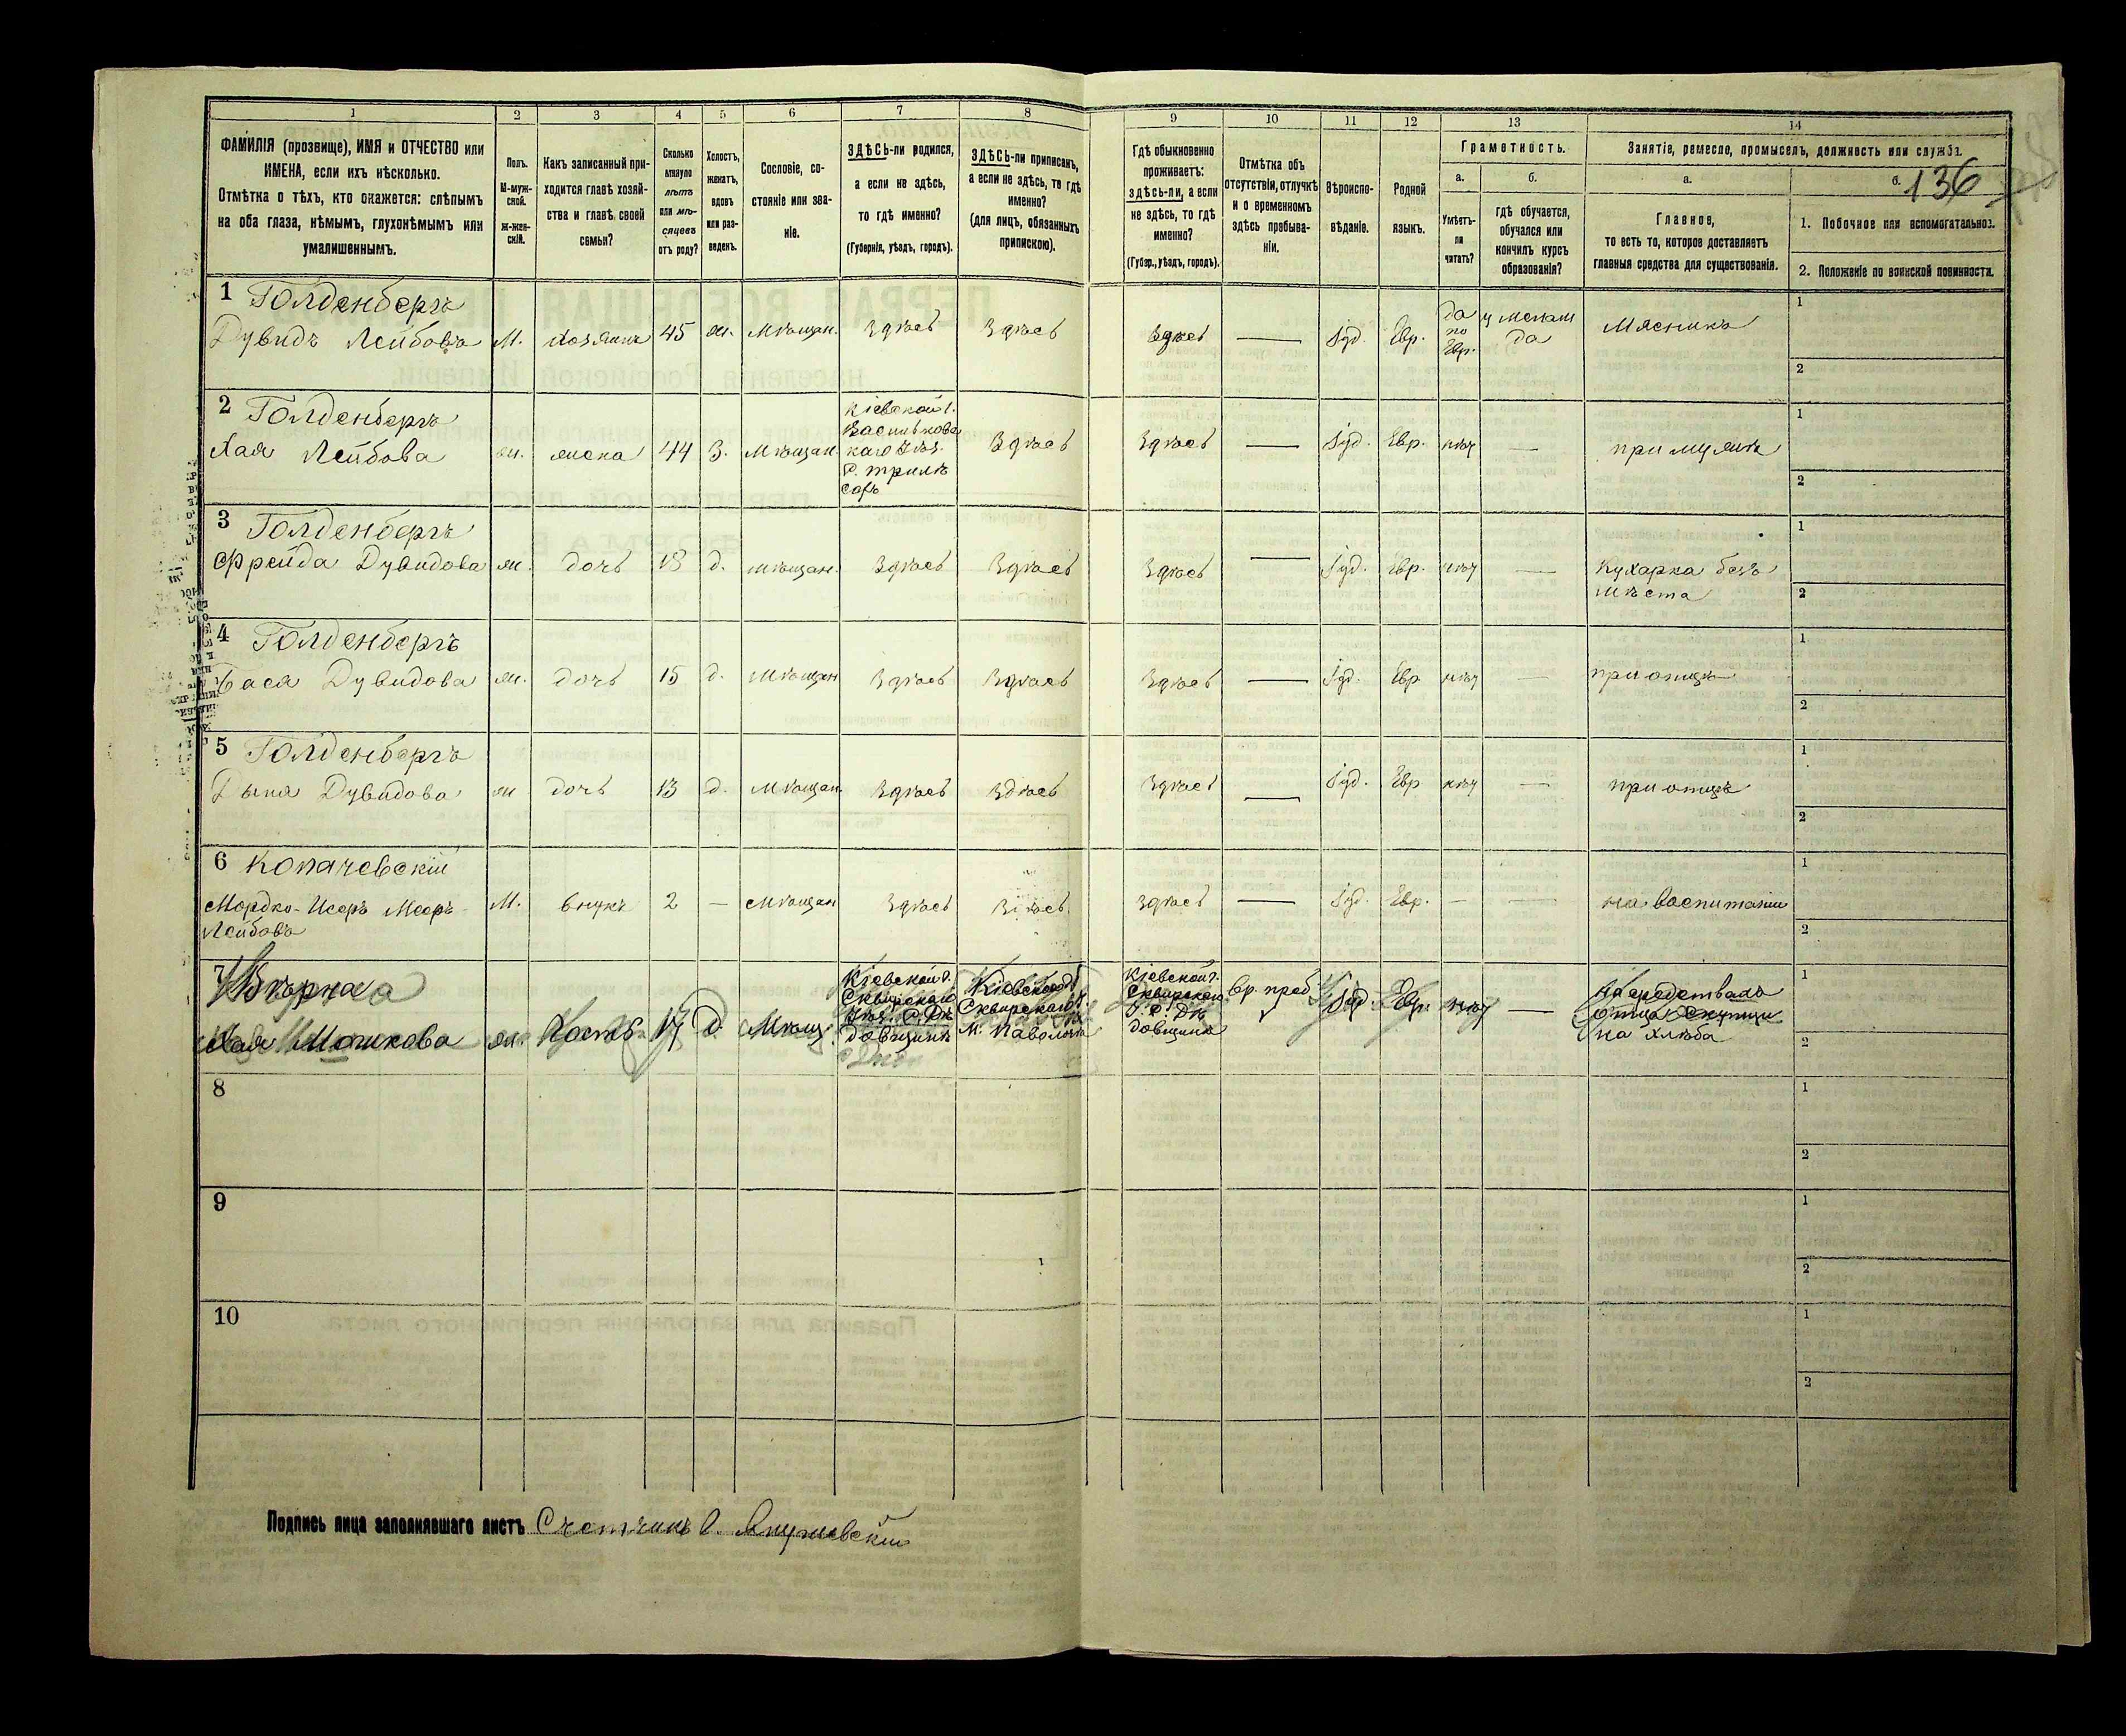 1 2 3 4 5 6 7 8 9 10 11 12 13 14
ФАМИЛІЯ (прозвище), ИМЯ и ОТЧЕСТВО или
ИМЕНА, если ихъ нѣсколько.
Отмѣтка о тѣхъ, кто окажется: слѣпымъ
на оба глаза, нѣмымъ, глухонѣмымъ или
умалишеннымъ.
Полъ.
М-муж-
ской.
Ж-жен-
скій.
Какъ записанный при-
ходится главѣ хозяй-
ства и главѣ своей
семьи?
Сколько
минуло
лѣтъ
или мѣ-
сяцевъ
отъ роду?
Холостъ,
женатъ,
вдовъ
или раз-
веденъ.
Сословіе, со-
стояніе или зва-
ніе.
ЗДѢСЬ-ли родился,
а если не здѣсь,
то гдѣ именно?
(Губернія, уѣздъ, городъ).
ЗДѢСЬ-ли приписанъ,
а если не здѣсь, то гдѣ
именно?
(для лицъ, обязанныхъ
припискою).
Гдѣ обыкновенно
проживаетъ:
здѣсь-ли, а если
не здѣсь, то гдѣ
именно?
(Губер., уѣздъ, городъ).
Отмѣтка объ
отсутствіи, отлучкѣ
и о временномъ
здѣсь пребыва-
ніи.
Вѣроиспо-
вѣданіе.
Родной
языкъ.
Грамотность.
а.
Умѣетъ-
ли
читать?
б.
гдѣ обучается,
обучался или
кончилъ курсъ
образованія?
Занятіе, ремесло, промыселъ, должность или служба.
а.
Главное,
то есть то, которое доставляетъ
главныя средства для существованія.
б.
136
1. Побочное или вспомогательное.
2. Положеніе по воинской повинности.
1 Голденбергъ
Дувидъ Лейбовъ М. Хозяинъ 45 ж. Мѣщан. Здѣсь Здѣсь Здѣсь — Іуд. Евр. да по Евр. да Мясникъ
1
2
2 Голденбергъ
Хая Лейбова ж. жена 44 З. Мѣщан.
Кіевской г.
Васильковс
каго Уѣз.
Здѣсь Здѣсь — Іуд. Евр. нѣт — при мужѣ
1
2
3 Голденбергъ
Фрейда Дувидова ж. дочь 18 д. мѣщан. Здѣсь Здѣсь Здѣсь — Іуд. Евр. нѣт —
Кухарка безъ
мѣста
1
2
4 Голденбергъ
Бася Дувидова ж. дочь 15 д. Мѣщан Здѣсь Здѣсь Здѣсь — Іуд. Евр нѣт — при отцѣ
1
2
5 Голденбергъ
Дувидова ж дочь 13 д. Мѣщан Здѣсь Здѣсь Здѣсь — Іуд. Евр нѣт — при отцѣ
1
2
6 Копачевскій
Мордко- Меер-
Лейбовъ
М. внукъ 2 — Мѣщан Здѣсь Здѣсь Здѣсь — Іуд. Евр. — — на воспитаніи
1
2
7
Хая Мошкова ж. Гость 17 д. Мѣщ.
Кіевской г.
Сквирскаго
Уѣз.
Кіевской г.
Сквирскаго У.
м. Паволочь
Кіевской г.
Сквирскаго
Вр. преб. Іуд. Евр. нѣт —
отца
хлѣба
1
2
8
1
2
9
1
2
10
1
2
Подпись лица заполнявшаго листъ Счетчикъ